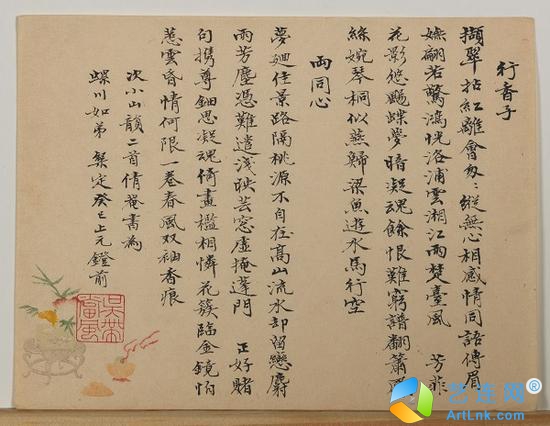 行香子
擷翠拈紅離會匆〻縱無心相感情同話傳眉
嫵翩若驚鴻恍洛浦雲湘江雨楚臺風 芳菲
花影悠颺蝶夢暗凝魂餘恨難窮譜翻簫
絲婉琴桐似燕歸梁魚遊水馬行空
両同心
夢迴佳景路隔桃源不自在高山流水却留戀麝
雨芳塵憑難遣淺映芸窓虛掩蓬門 正好賭
句攜尊鈿思凝魂倚畫檻相憐花簇臨金鏡怕
惹雲昏情何限一卷春風双袖香痕
次小山韻二首倩菴書為
螺川如弟 粲定癸巳上元鐙前
吳帶當風
艺连网®
ArtLnk.com